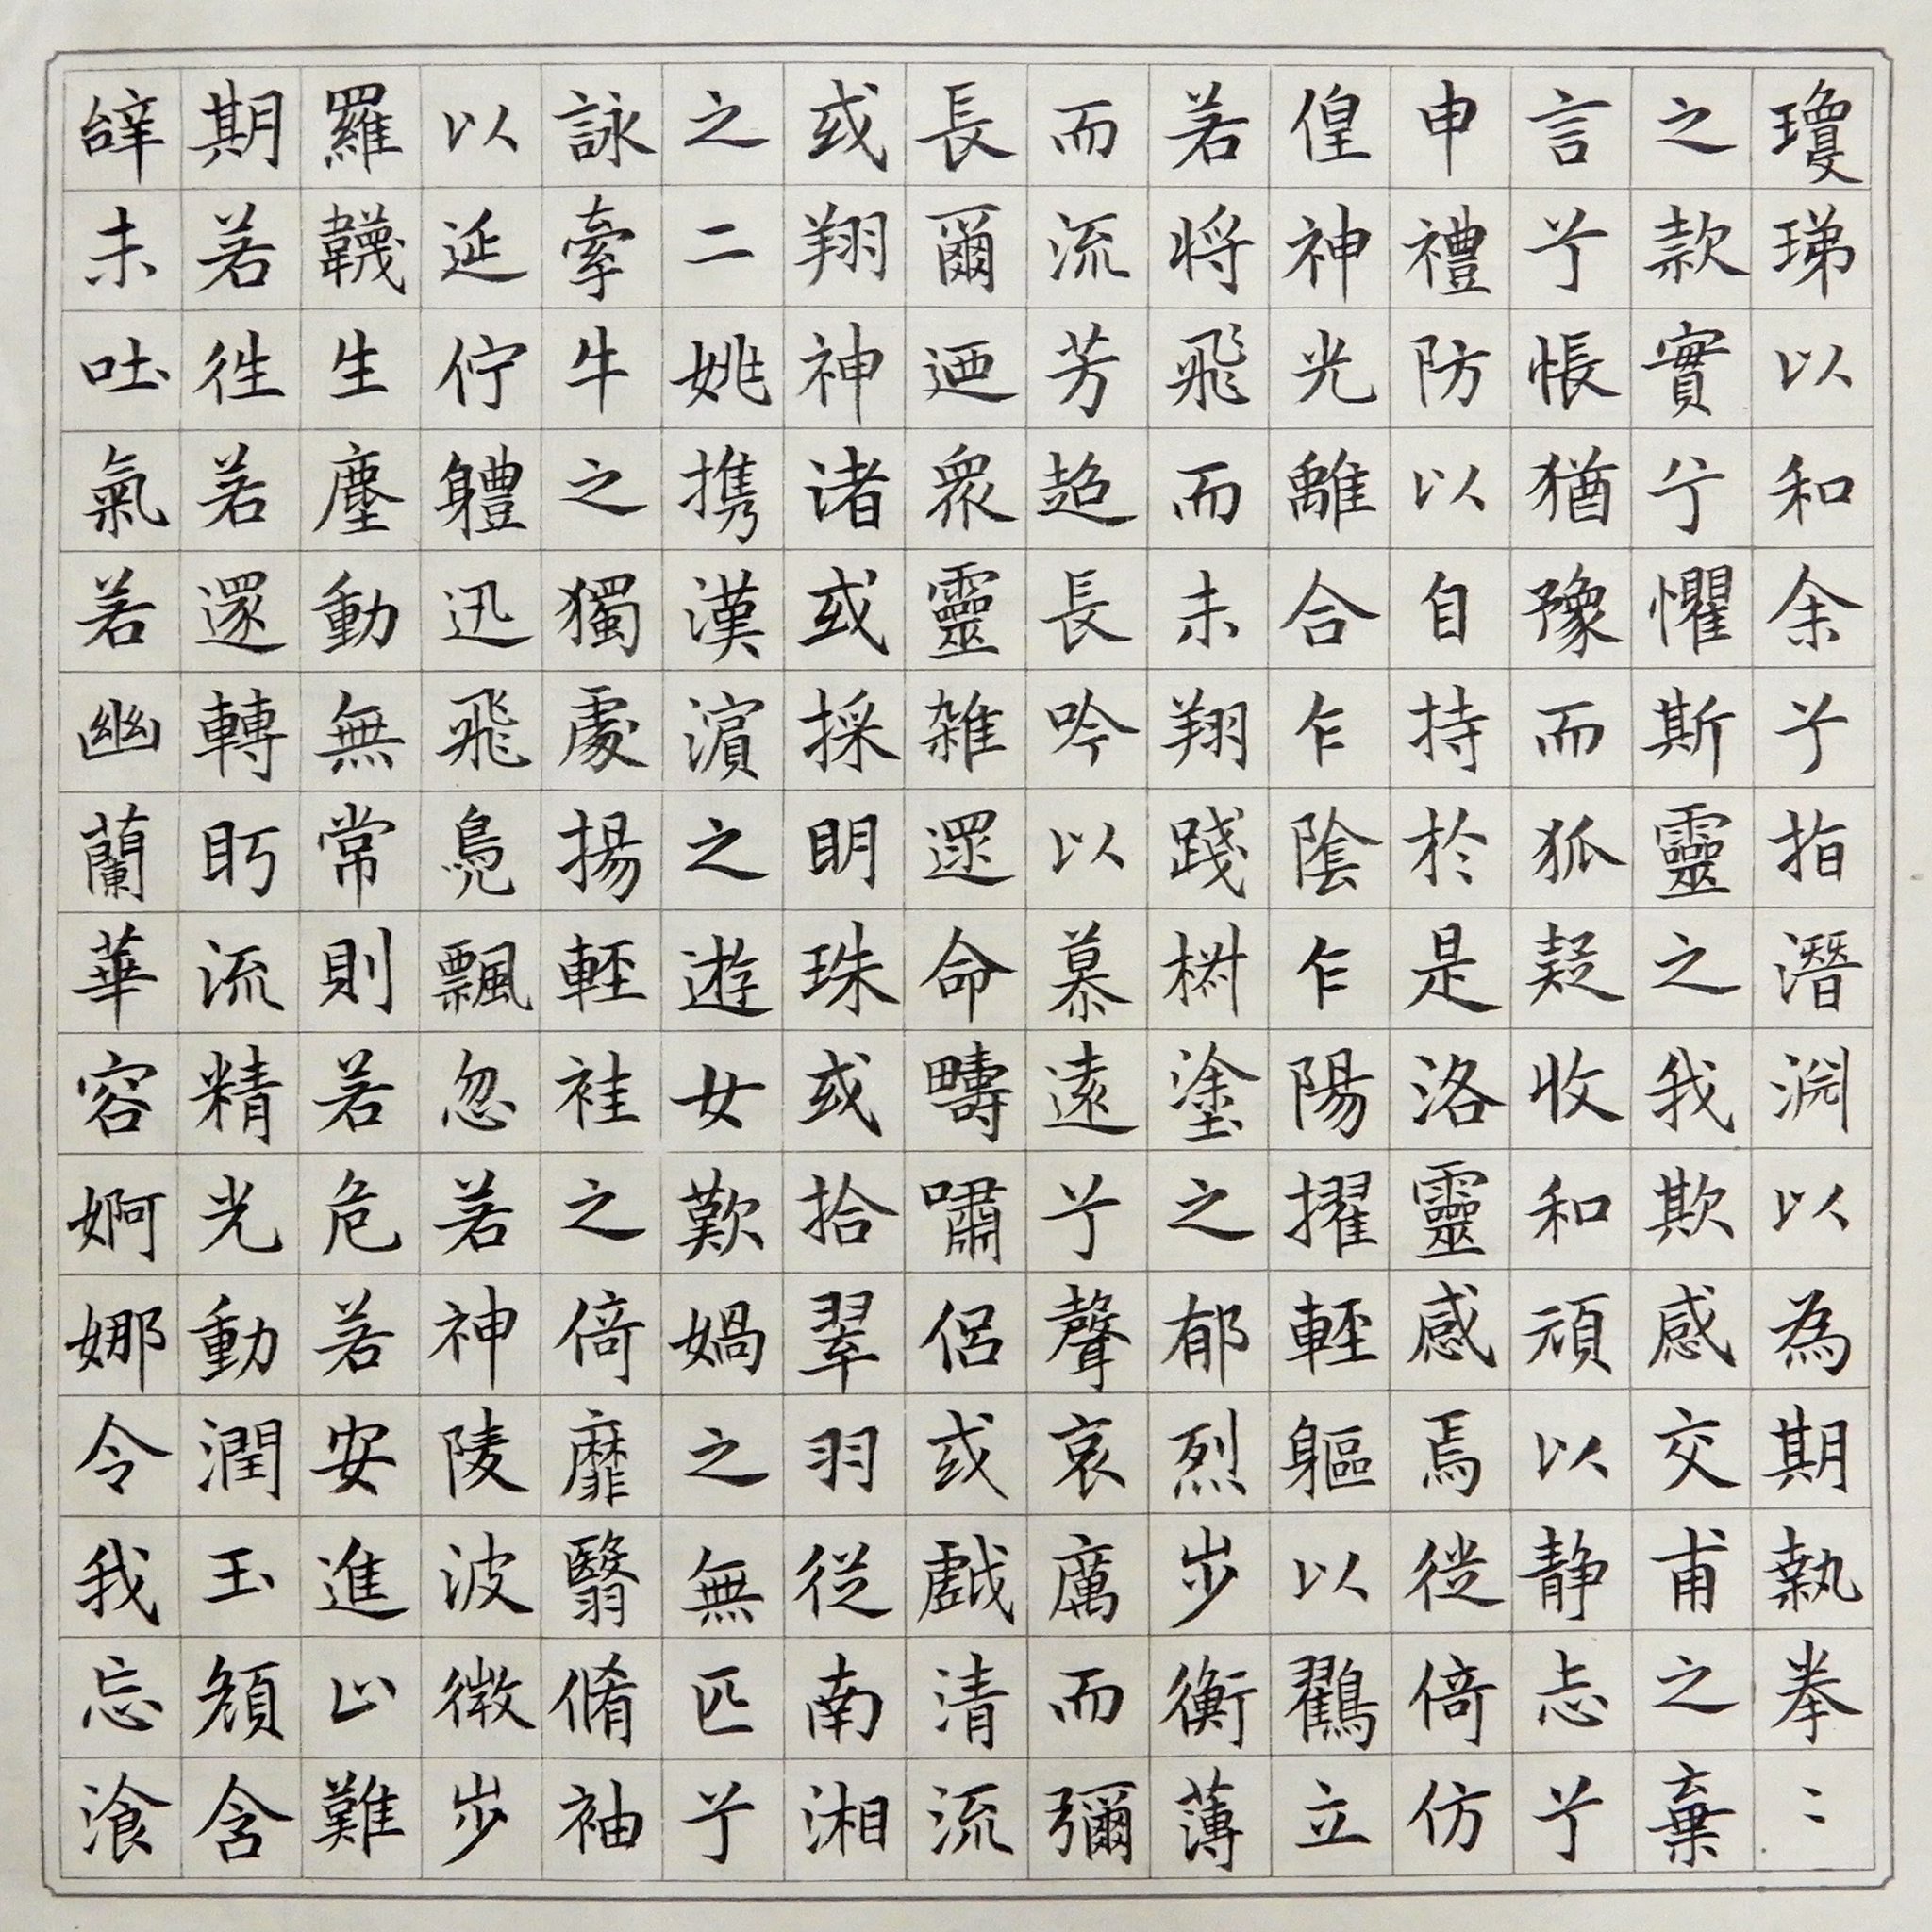 瓊珶以和余兮指潛淵以為期執拳〻
之款實兮懼斯靈之我欺感交甫之棄
言兮悵猶豫而狐疑收和顏以静志兮
申禮防以自持於是洛靈感焉徙倚仿
偟神光離合乍陰乍陽擢輕軀以鶴立
若将飛而未翔踐椒塗之郁烈步衡薄
而流芳超長吟以慕遠兮聲哀厲而彌
長爾迺衆靈雜遝命疇嘯侶或戲清流
或翔神渚或採明珠或拾翠羽従南湘
之二姚攜漢濱之遊女歎媧之無匹兮
詠牽牛之獨處揚輕袿之倚靡翳脩袖
以延佇軆迅飛鳧飄忽若神陵波微步
羅韈生塵動無常則若危若安進止難
期若往若還轉眄流精光潤玉顏含
辞未吐氣若幽蘭華容婀娜令我忘飡